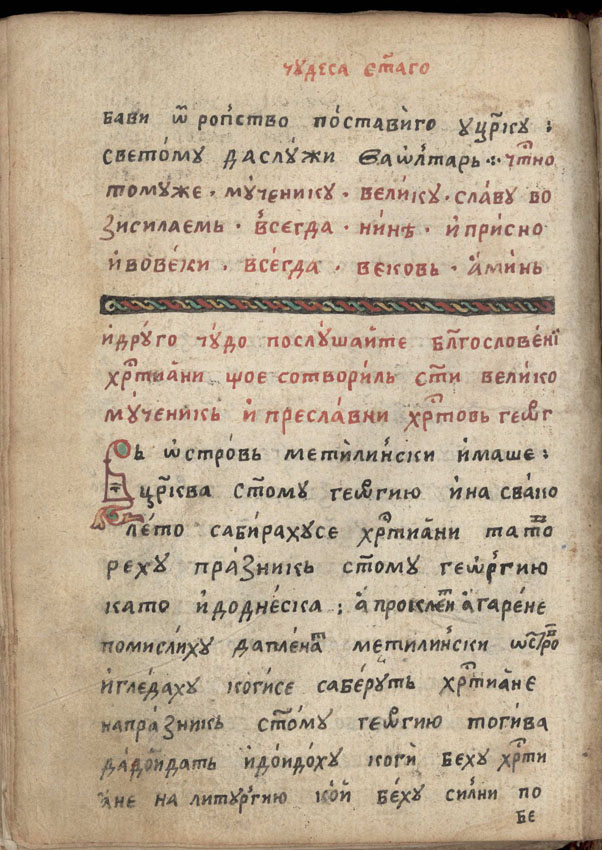 чꙋдеса ст҃аго
бави ѿ ропство поставиго ꙋцр҃кꙋ :
светомꙋ даслꙋжи ѳаѡлтарь : чт҃но
томꙋже · мꙋченикꙋ · великꙋ · славꙋ во
ꙁисилаемь · всегда · нинѣ · и присно
ивовеки · всегда · вековь · аминь
идрꙋго чꙋдо послꙋшаите бл҃гословени
хр҃тиꙗни щое сотвориль ст҃и велико
мꙋченикь и преславни хр҃товь геѡг
Вь ѡстровь метилински имаше :
цр҃ква ст҃омꙋ геѡгию ина свако
лето сабирахꙋсе хр҃тиꙗни тато
рехꙋ праꙁникь ст҃омꙋ геѡргию
като идоднеска ; а проклет҃и агарене
помислихꙋ дапленат҃ метилински ѡстро҃в
игледахꙋ когисе саберꙋть хр҃тиꙗне
напраꙁникь ст҃омꙋ геѡгию тогива
дадоидать идоидохꙋ коги бехꙋ хр҃ти
ꙗне на литꙋргию кои бехꙋ силни по
бе